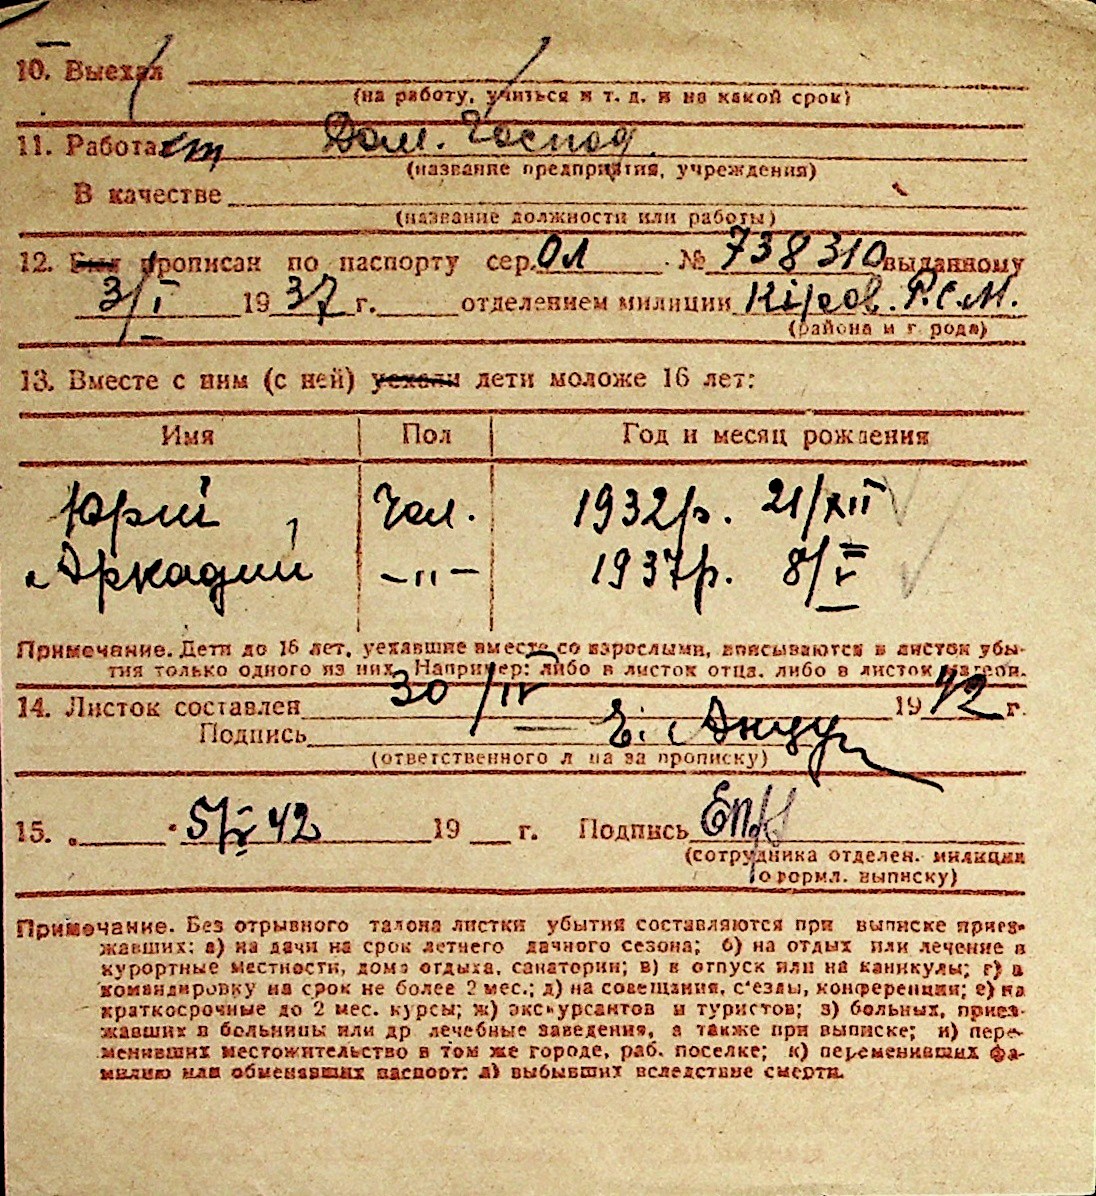 10. Выехал
(на работу, учиться и т. д. и на какой срок)
11. Работает Дом. Господ.
(название предприятия, учреждения)
В качестве
(название должности или работы)
12. Был прописан по паспорту сер. ОЛ № 738310 выданному
3/I 1937 г. отделением милиции Кіров. Р.С.М.
(района и города)
13. Вместе с ним (с ней) уехали дети моложе 16 лет:
Имя Пол Год и месяц рождения
Юрий Чол. 1932р. 21/XII
Аркадий —"— 1937р. 8/V
Примечание. Дети до 16 лет, уехавшие вместе со взрослыми, вписываются в листок убы-
тия только одного из них. Например: либо в листок отца, либо в листок матери.
14. Листок составлен 30/IV 1942 г.
Подпись Е.
(ответственного лица за прописку)
15. „ " 5/V 42 19 г. Подпись
(сотрудника отделен. милиции
оформл. выписку)
Примечание. Без отрывного талона листки убытия составляются при выписке приез-
жавших: а) на дачи на срок летнего дачного сезона; б) на отдых или лечение в
курортные местности, дома отдыха, санатории; в) в отпуск или на каникулы; г) в
командировку на срок не более 2 мес.; д) на совещания, с'езды, конференции; е) на
краткосрочные до 2 мес. курсы; ж) экскурсантов и туристов; з) больных, приез-
жавших в больницы или др лечебные заведения, а также при выписке; и) пере-
менивших местожительство в том же городе, раб. поселке; к) переменивших фа-
милию или обменявших паспорт; л) выбывших вследствие смерти.